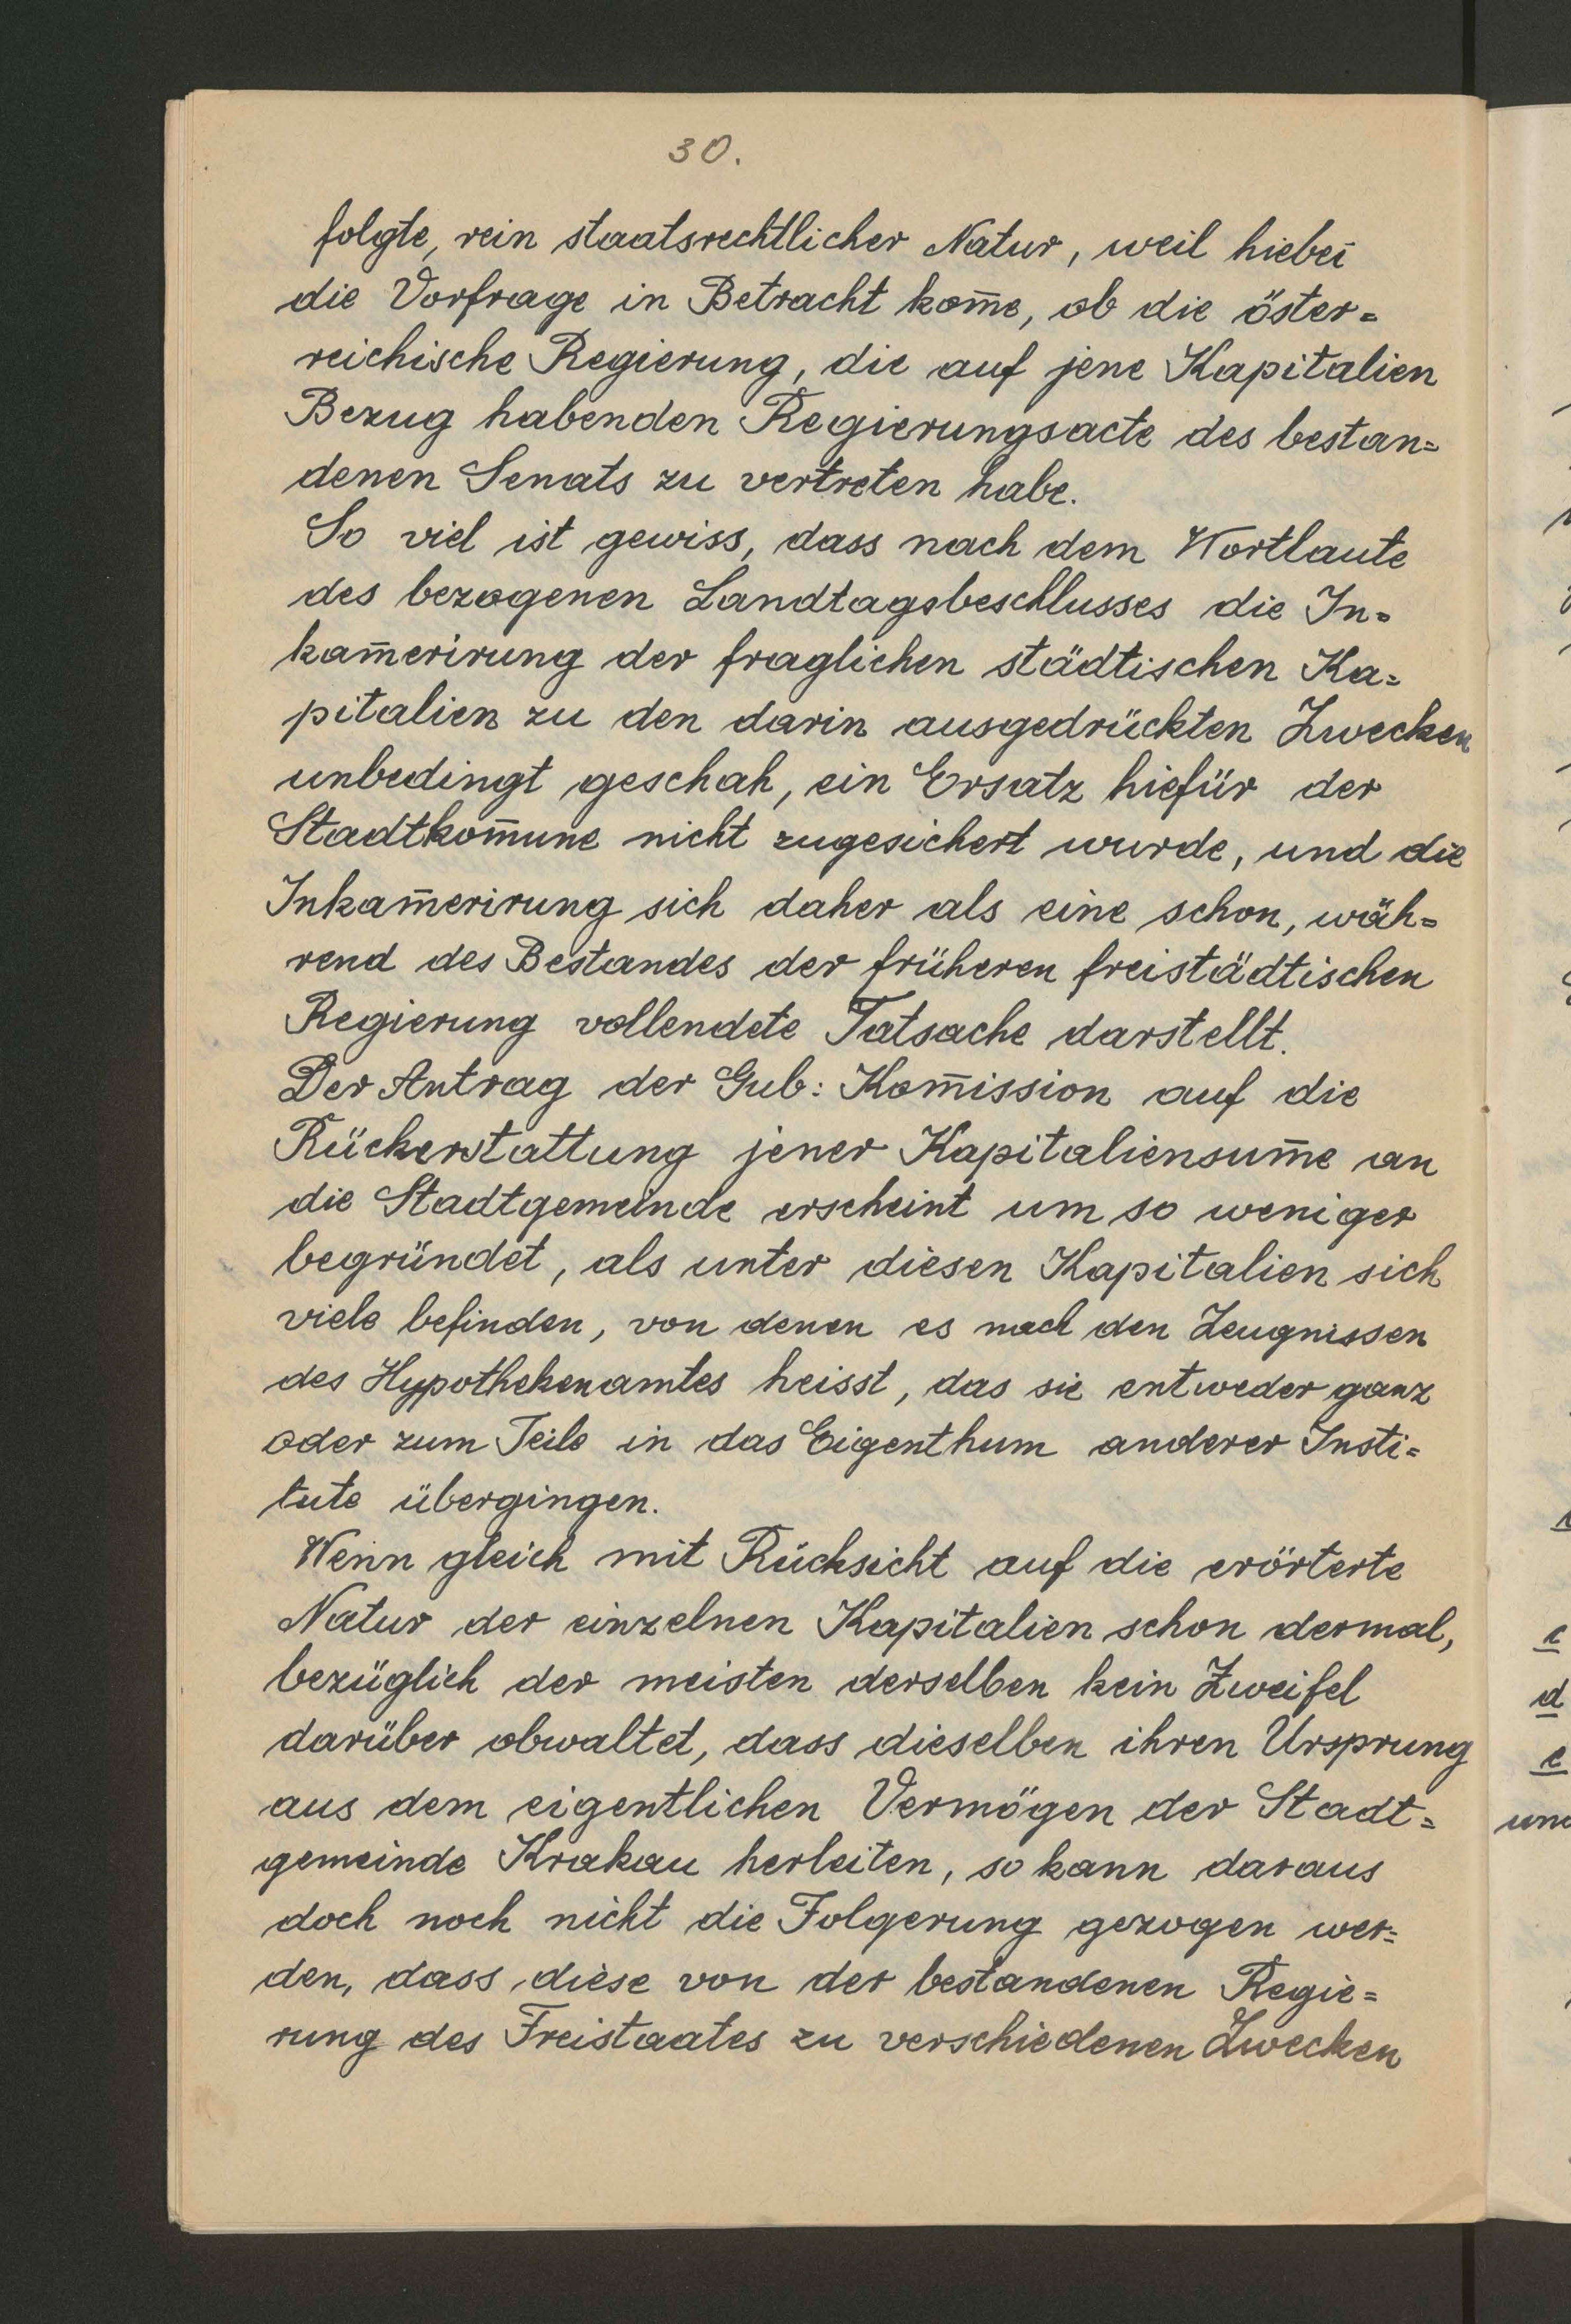 30.
folgte, rein staatsrechtlicher Natur, weil hiebei
die Vorfrage in Betracht kom̅e, ob die öster=
reichische Regierung, die auf jene Kapitalien
Bezug habenden Regierungsacte des bestan=
denen Senats zu vertreten habe.
So viel ist gewiss, dass nach dem Wortlaute
des bezogenen Landtagsbeschlusses die In=
kam̅erirung der fraglichen städtischen Ka=
pitalien zu den darin ausgedrückten Zwecken
unbedingt geschah, ein Ersatz hiefür der
Stadtkom̅une nicht zugesichert wurde, und die
Inkam̅erirung sich daher als eine schon, wäh=
rend des Bestandes der früheren freistädtischen
Regierung vollendete Tatsache darstellt.
Der Antrag der Gub: Kom̅ission auf die
Rückerstattung jener Kapitaliensum̅e an
die Stadtgemeinde erscheint um so weniger
begründet, als unter diesen Kapitalien sich
viele befinden, von denen es nach den Zeugnissen
des Hypothekenamtes heisst, das sie entweder ganz
oder zum Teile in das Eigenthum anderer Insti=
tute übergingen.
Wenn gleich mit Rücksicht auf die erörterte
Natur der einzelnen Kapitalien schon dermal,
bezüglich der meisten derselben kein Zweifel
darüber obwaltet, dass dieselben ihren Ursprung
aus dem eigentlichen Vermögen der Stadt=
gemeinde Krakau herleiten, so kann daraus
doch noch nicht die Folgerung gezogen wer=
den, dass diese von der bestandenen Regie=
rung des Freistaates zu verschiedenen Zwecken